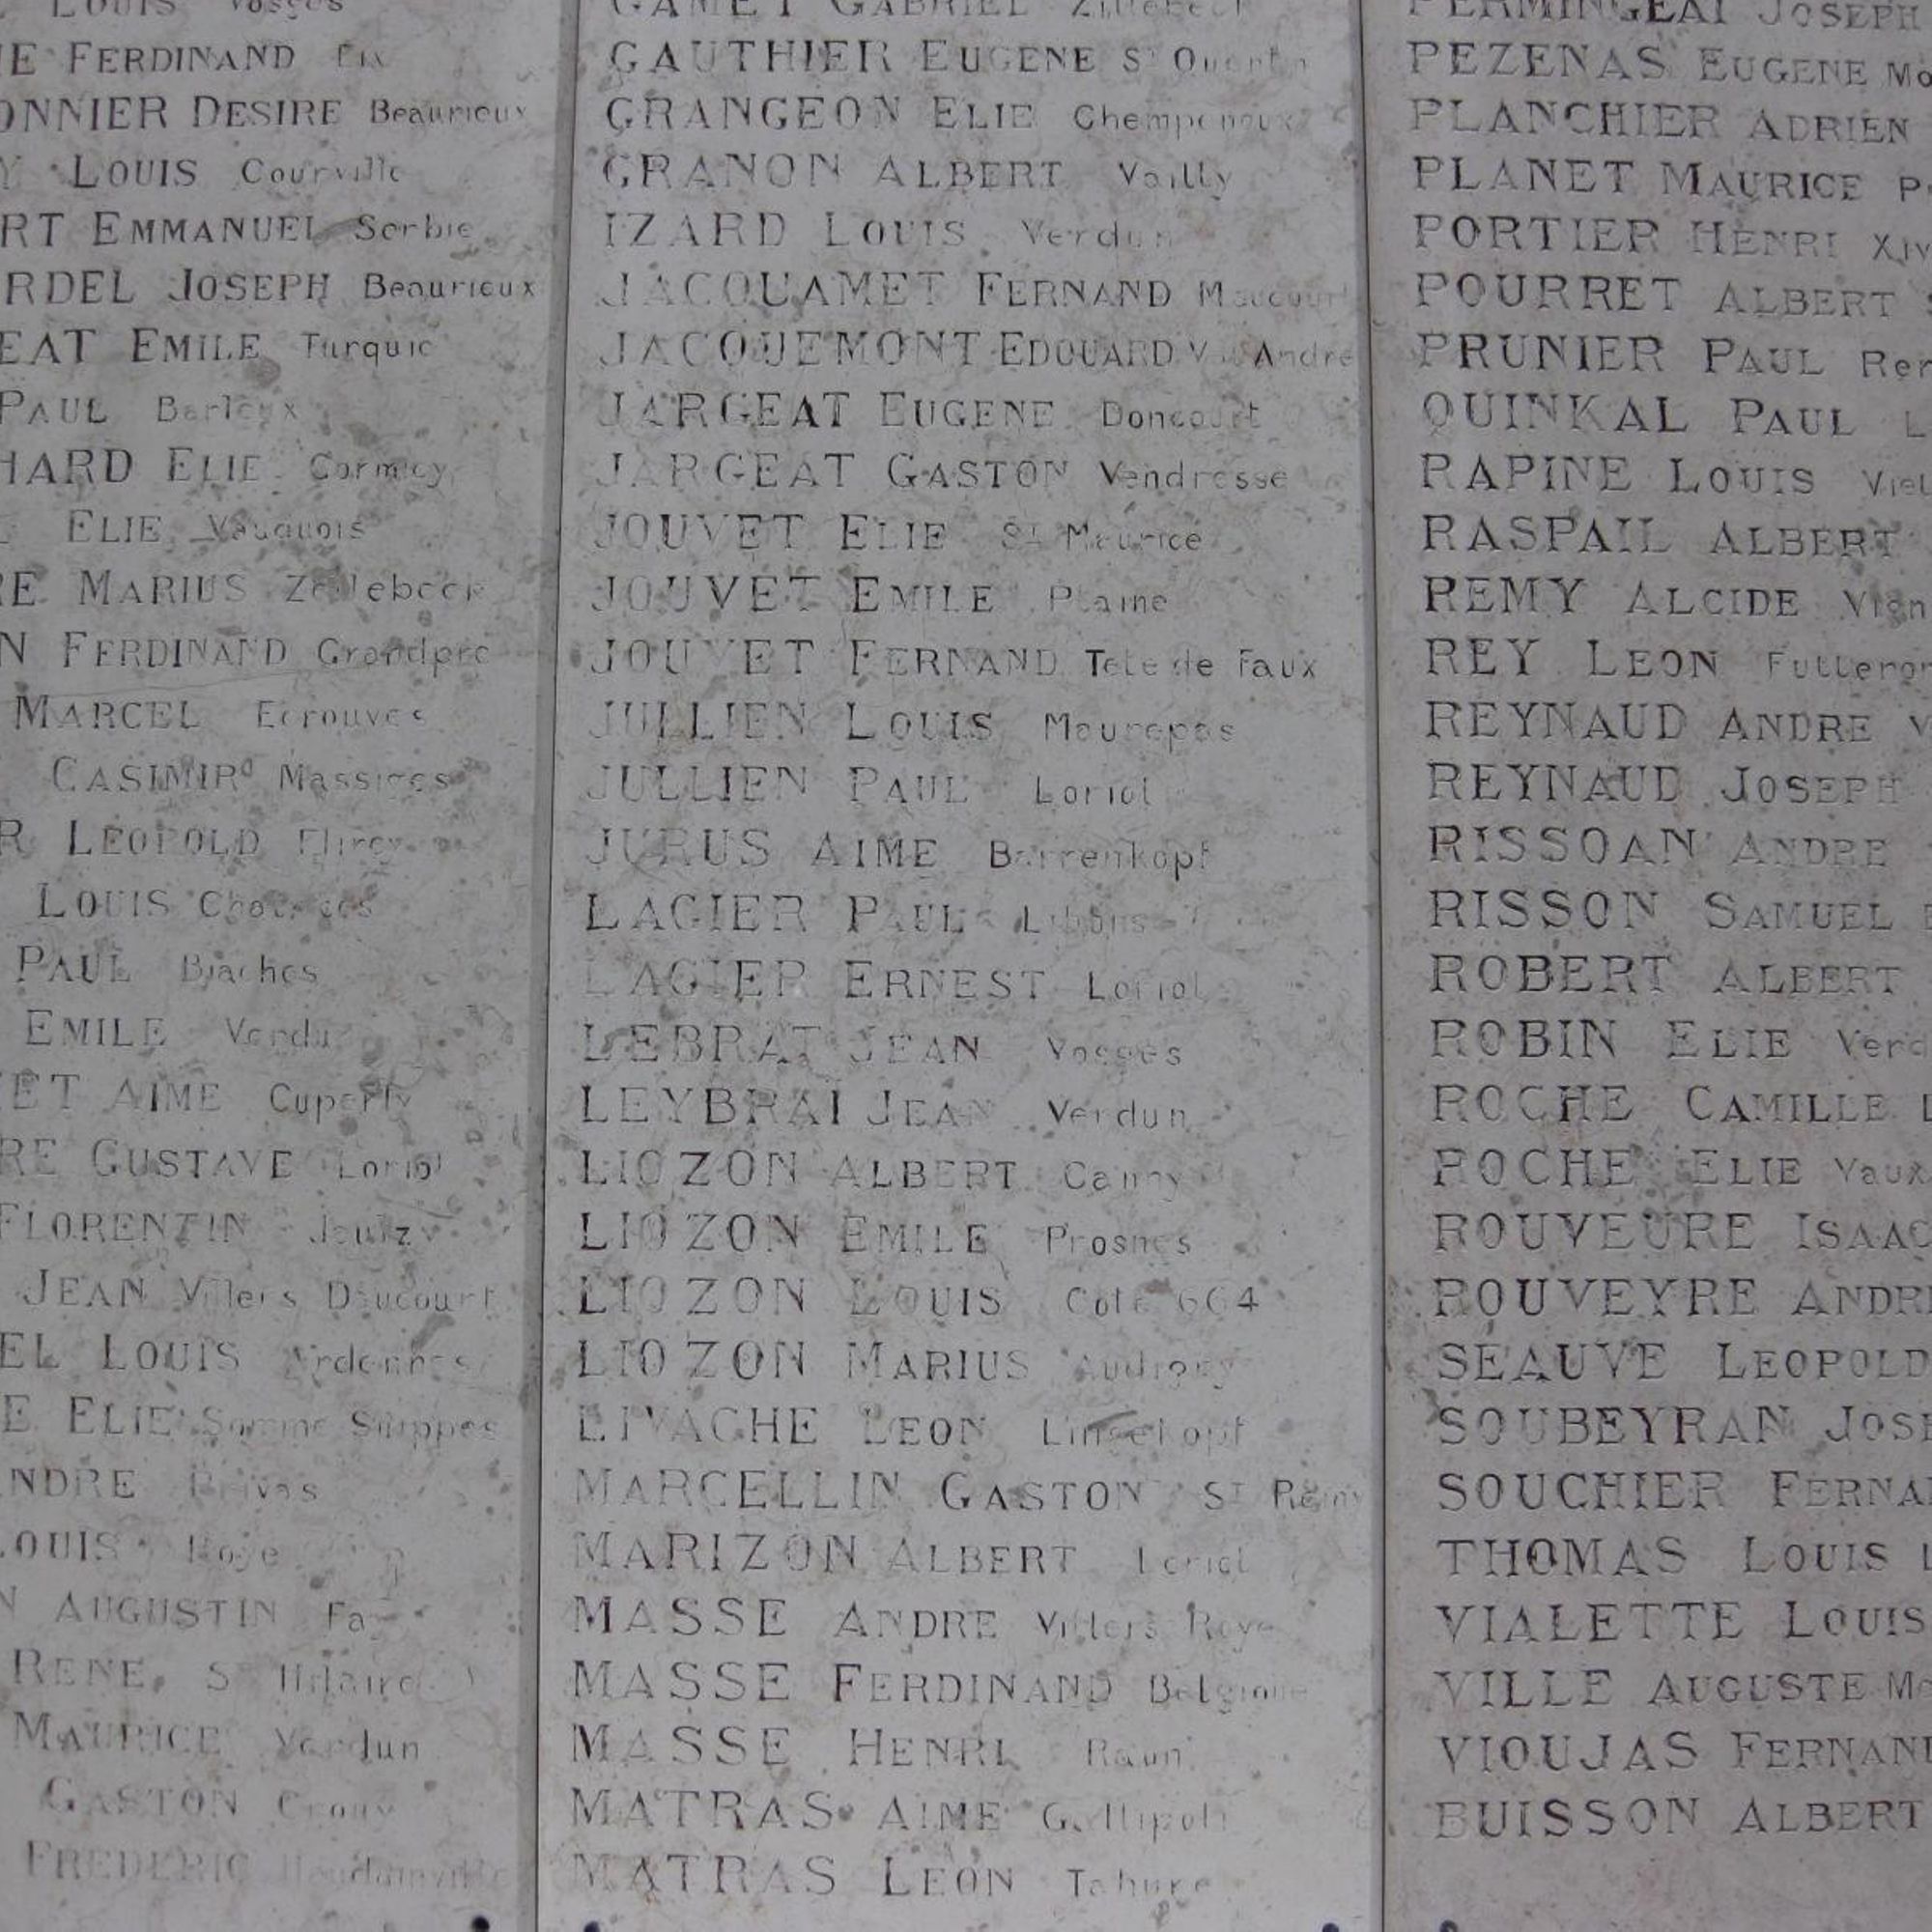 LOUIS Vosges
FERDINAND Fix
ONNIER DESIRE Beaurieux
Y LOUIS Courville
RT EMMANUEL Serbie
RDEL JOSEPH Beaurieux
EAT EMILE Turquie
PAUL Barleux
HARD ELIE Cormicy
ELIE Vauquois
RE MARIUS Zellebeck
N FERDINAND Grandpre
MARCEL Ecrouves
CASIMIR Massiges
R LEOPOLD Flirey
LOUIS
PAUL Biaches
EMILE Verdun
ET AIME Cuperly
RE GUSTAVE Loriol
FLORENTIN Jaulzy
JEAN Villers Daucourt
EL LOUIS Ardennes
E ELIE Somme Suippes
NDRE Privas
LOUIS Roye
N AUGUSTIN
RENE St Hilaire
MAURICE Verdun
GASTON Crouy
FREDERIC Haudainville
GAMET GABRIEL Zillebeck
GAUTHIER EUGENE St Quentin
GRANGEON ELIE Champenoux
GRANON ALBERT Vailly
IZARD LOUIS Verdun
JACQUAMET FERNAND Maucourt
JACQUEMONT EDOUARD Val Andre
JARGEAT EUGENE Doncourt
JARGEAT GASTON Vendresse
JOUVET ELIE St Maurice
JOUVET EMILE Plaine
JOUVET FERNAND Tete de Faux
JULLIEN LOUIS Maurepas
JULLIEN PAUL Loriol
JURUS AIME Barrenkopf
LAGIER PAUL Lihons
LAGIER ERNEST Loriol
LEBRAT JEAN Vosges
LEYBRAI JEAN Verdun
LIOZON ALBERT Canny
LIOZON EMILE Prosnes
LIOZON LOUIS Cote 664
LIOZON MARIUS Audigny
LIVACHE LEON Lingekopf
MARCELLIN GASTON St Remy
MARIZON ALBERT Loriol
MASSE ANDRE Villers Roye
MASSE FERDINAND Belgique
MASSE HENRI Raun
MATRAS AIME Gallipoli
MATRAS LEON Tahure
PERMINGEAT JOSEPH
PEZENAS EUGENE Mo
PLANCHIER ADRIEN
PLANET MAURICE
PORTIER HENRI Xiv
POURRET ALBERT
PRUNIER PAUL Rem
QUINKAL PAUL L
RAPINE LOUIS Viel
RASPAIL ALBERT
REMY ALCIDE Vign
REY LEON Futteren
REYNAUD ANDRE V
REYNAUD JOSEPH
RISSOAN ANDRE
RISSON SAMUEL
ROBERT ALBERT
ROBIN ELIE Verd
ROCHE CAMILLE
ROCHE ELIE Vaux
ROUVEURE ISAAC
ROUVEYRE ANDRE
SEAUVE LEOPOLD
SOUBEYRAN JOSE
SOUCHIER FERNA
THOMAS LOUIS
VIALETTE LOUIS
VILLE AUGUSTE Mo
VIOUJAS FERNAND
BUISSON ALBERT